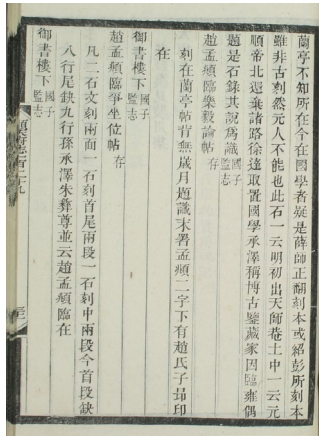 蘭亭不知所在今在國學者疑是薛師正翻刻本或紹彭所刻本
雖非古刻然元人不能也此石一云明初出天師菴土中一云元
順帝北遁棄諸路徐達取置國學承澤稱博古鑒藏家因臨雍偶
題是石錄其說爲識國子監志
趙孟頫臨樂毅論帖存
刻在蘭亭帖背無歲月題識末署孟頫二字下有趙氏子昻印
在
御書樓下國子監志
趙孟頫臨爭坐位帖存
凡二石文刻兩面一石刻首尾兩段一石刻中兩段今首段缺
八行尾缺九行孫承澤朱彝尊並云趙孟頫臨在
御書樓下國子監志